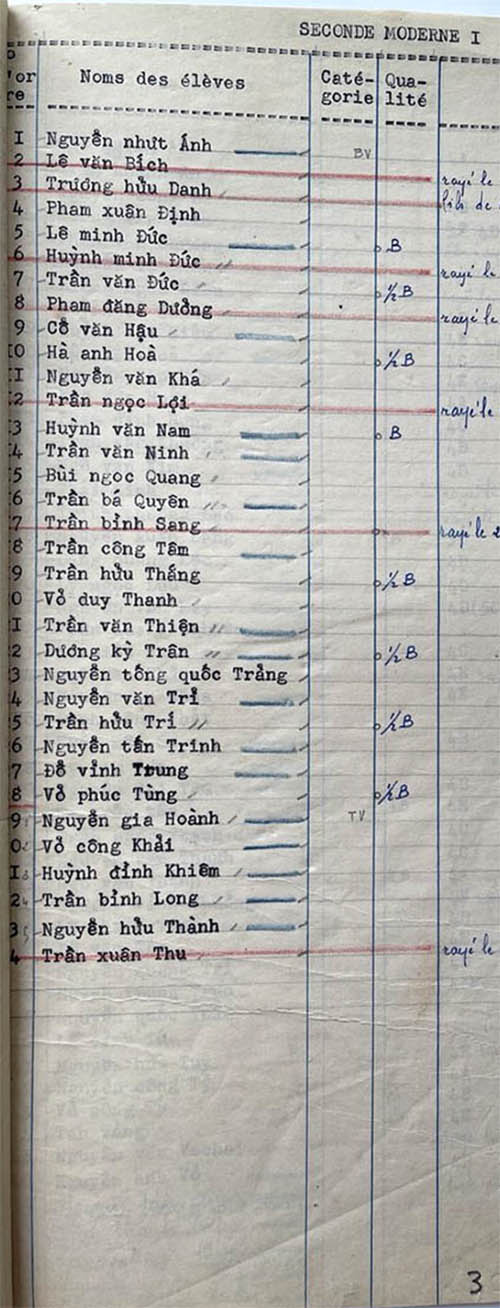 SECONDE MODERNE I
Noms des élèves Caté- Qua-
gorie lité
I Nguyễn nhựt Ánh BV
2 Lê văn Bích
3 Trương hửu Danh rayé le
4 Phạm xuân Định
5 Lê minh Đức B
6 Huỳnh minh Đức rayé le
7 Trần văn Đức ½B
8 Phạm đăng Dưỡng rayé le
9 Cồ văn Hậu
I0 Hà anh Hoà ½B
II Nguyễn văn Khá
I2 Trần ngọc Lợi rayé le
3 Huỳnh văn Nam B
4 Trần văn Ninh
5 Bùi ngọc Quang
6 Trần bá Quyên
7 Trần bỉnh Sang rayé le 2
8 Trần công Tâm
9 Trần hửu Thắng ½B
0 Vỏ duy Thanh
I Trần văn Thiện
2 Dương kỳ Trân ½B
3 Nguyễn tống quốc Trảng
4 Nguyễn văn Trỉ
5 Trần hửu Trí ½B
6 Nguyễn tấn Trinh
7 Đỗ vỉnh Trung
8 Vỏ phúc Tùng ½B
9 Nguyễn gia Hoành TV
0 Vỏ công Khải
I Huỳnh đỉnh Khiêm
2 Trần bỉnh Long
3 Nguyễn hửu Thành
4 Trần xuân Thu rayé le
3